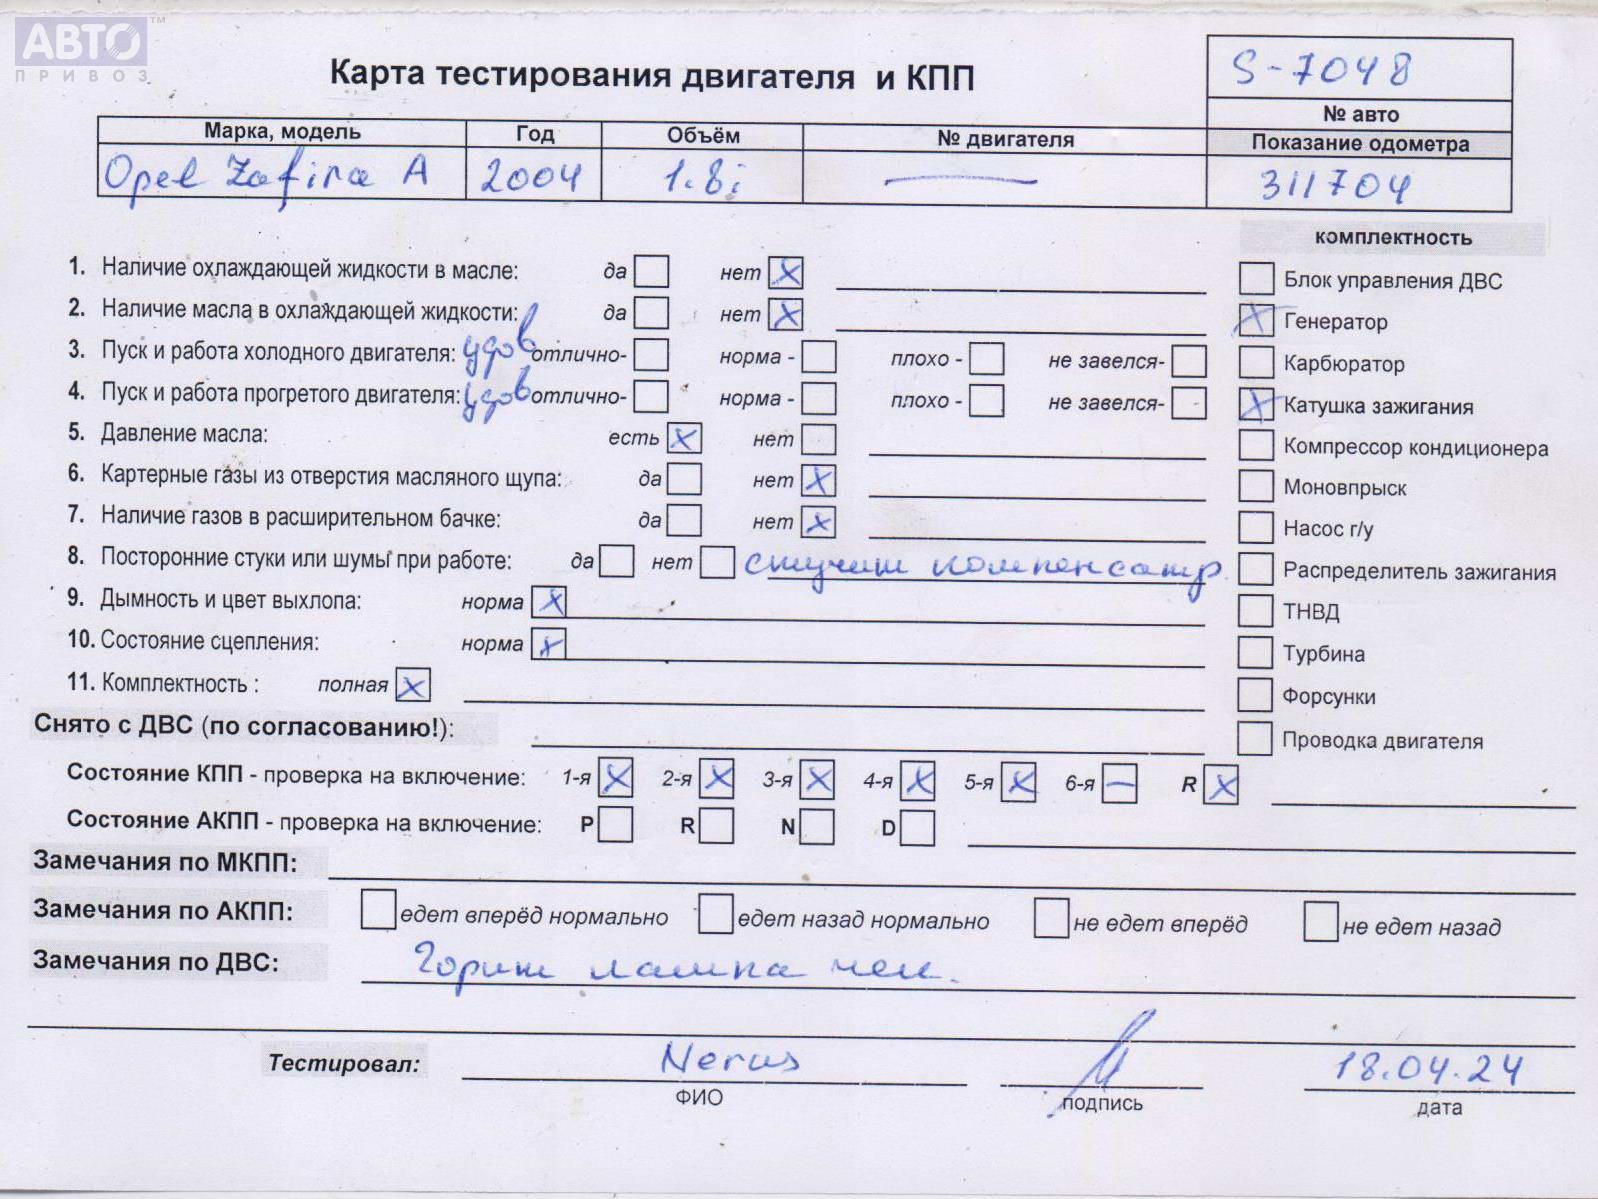 АВТО ™
ПРИВОЗ
Карта тестирования двигателя и КПП
S-7048
№ авто
Марка, модель Год Объём № двигателя Показание одометра
Opel Zafira A 2004 1.8i — 311704
комплектность
1. Наличие охлаждающей жидкости в масле: да нет X
Блок управления ДВС
2. Наличие масла в охлаждающей жидкости: да нет X
X Генератор
3. Пуск и работа холодного двигателя: удов отлично- норма - плохо - не завелся-
Карбюратор
4. Пуск и работа прогретого двигателя: удов отлично- норма - плохо - не завелся-
X Катушка зажигания
5. Давление масла: есть X нет
Компрессор кондиционера
6. Картерные газы из отверстия масляного щупа: да нет X
Моновпрыск
7. Наличие газов в расширительном бачке: да нет X
Насос г/у
8. Посторонние стуки или шумы при работе: да нет стучит компенсатр.
Распределитель зажигания
9. Дымность и цвет выхлопа: норма X
ТНВД
10. Состояние сцепления: норма X
Турбина
11. Комплектность : полная X
Форсунки
Снято с ДВС (по согласованию!):
Проводка двигателя
Состояние КПП - проверка на включение: 1-я X 2-я X 3-я X 4-я X 5-я X 6-я — R X
Состояние АКПП - проверка на включение: P R N D
Замечания по МКПП:
Замечания по АКПП: едет вперёд нормально едет назад нормально не едет вперёд не едет назад
Замечания по ДВС: Горит лампа чек.
Тестировал: 18.04.24
ФИО подпись дата